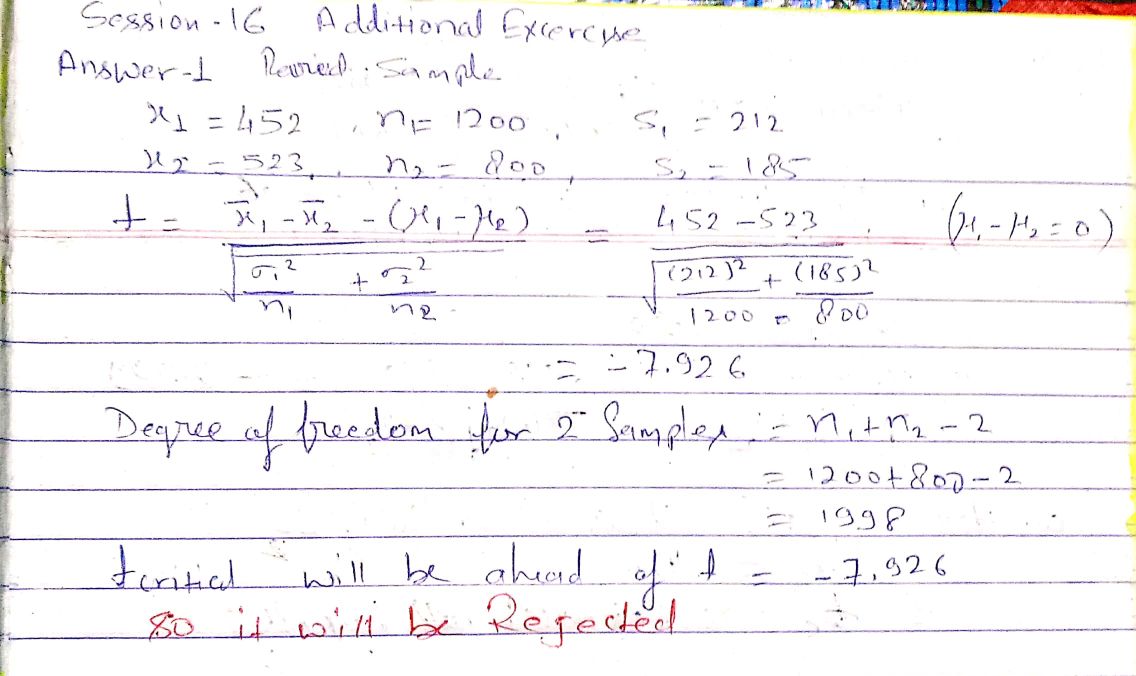 Session-16 Additional Excercise
Answer-1 Paired Sample
x1 = 452, n1= 1200, s1 = 212
x2 = 523, n2 = 800, s2 = 185
t = x̄1 - x̄2 - (μ1 - μ2) / √(σ1²/n1 + σ2²/n2) = 452 - 523 / √((212)²/1200 + (185)²/800) (μ1 - μ2 = 0)
= -7.926
Degree of freedom for 2 Samples = n1+n2-2
= 1200+800-2
= 1998
tcritical will be ahead of t = -7.926
so it will be Rejected